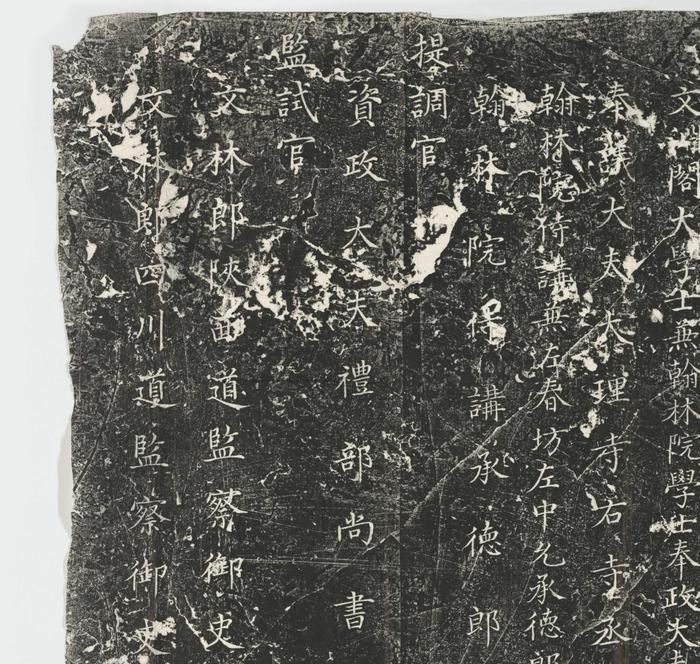 文閣大學士兼翰林院學士奉政大夫
奉議大夫大理寺右寺丞
翰林院侍講兼左春坊左中允承德郎
翰林院侍講承德郎
提調官
資政大夫禮部尚書
監試官
文林郎陝西道監察御史
文林郎四川道監察御史